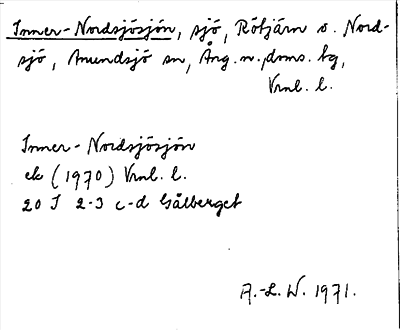 Inner-Nordsjösjön, sjö, Rötjärn o. Nord-
sjö, Anundsjö sn, Ång. n. doms. tg,
Vml. l.
Inner-Nordsjösjön
ek (1970) Vml. l.
20 J 2-3 c-d Gålberget
A.-L. W. 1971.